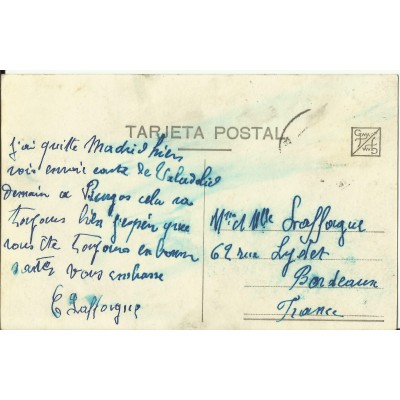 TARJETA POSTAL
j'ai quitté Madrid hier
vois envoi carte de Valadolid
Demain a Burgos cela va
toujours bien j'espère que
vous ete toujours en bonne
santez vous embrasse
E Laffargue
Mme et Mlle Laffargue
62 rue Lydet
Bordeaux
France